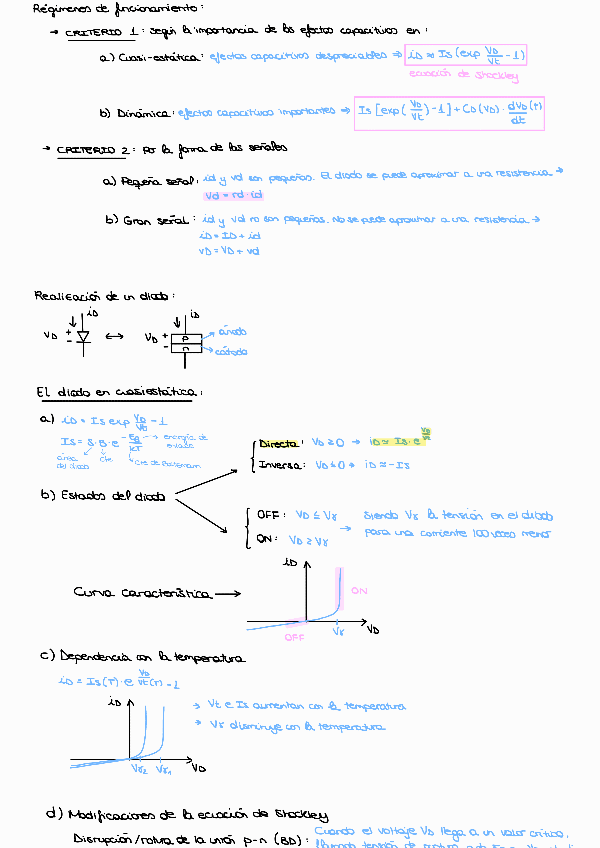 Régimenes de funcionamiento:
→ CRITERIO 1: según la importancia de los efectos capacitivos en:
a) Cuasi-estática: efectos capacitivos despreciables ⇒ iD ≈ Is (exp VD/Vt - 1)
ecuación de Shockley
b) Dinámica: efectos capacitivos importantes ⇒ Is [exp(VD/Vt) - 1] + CD(VD) · dVD(t)/dt
→ CRITERIO 2: Por la forma de las señales
a) Pequeña señal: id y vd son pequeños. El diodo se puede aproximar a una resistencia →
Vd = rd · id
b) Gran señal: id y vd no son pequeños. No se puede aproximar a una resistencia →
iD = ID + id
vD = VD + vd
Realización de un diodo:
iD
iD
VD + -
↔
VD + -
P
n
ánodo
cátodo
El diodo en cuasiestática:
a) iD = Is exp VD/Vt - 1
Is = S · B · e -Eg/kT → energía de
área del diodo
cte
cte de Boltzmann
Directa: VD ≥ 0 → iD ≃ Is · e VD/Vt
Inversa: VD ≤ 0 → iD ≃ -Is
b) Estados del diodo
OFF: VD ≤ Vγ
ON: VD ≥ Vγ
→ siendo Vγ la tensión en el diodo
para una corriente 100 veces menor
Curva característica →
iD
ON
OFF
Vγ
VD
c) Dependencia con la temperatura
iD = Is(T) · e VD/Vt(T) - 1
iD
Vγ2
Vγ1
VD
→ Vt e Is aumentan con la temperatura
→ Vγ disminuye con la temperatura
d) Modificaciones de la ecuación de Shockley
Disrupción/rotura de la unión p-n (BD): Cuando el voltaje VD llega a un valor crítico,